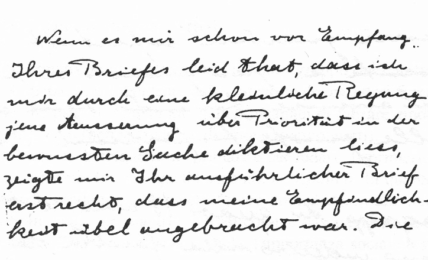 Wenn es mir schon vor Empfang
Ihres Briefes leid that, dass ich
mir durch eine kleinliche Regung
jene Aeusserung über Priorität in der
bewussten Sache diktieren liess,
zeigte mir Ihr ausführlicher Brief
erst recht, dass meine Empfindlich-
keit übel angebracht war. Die